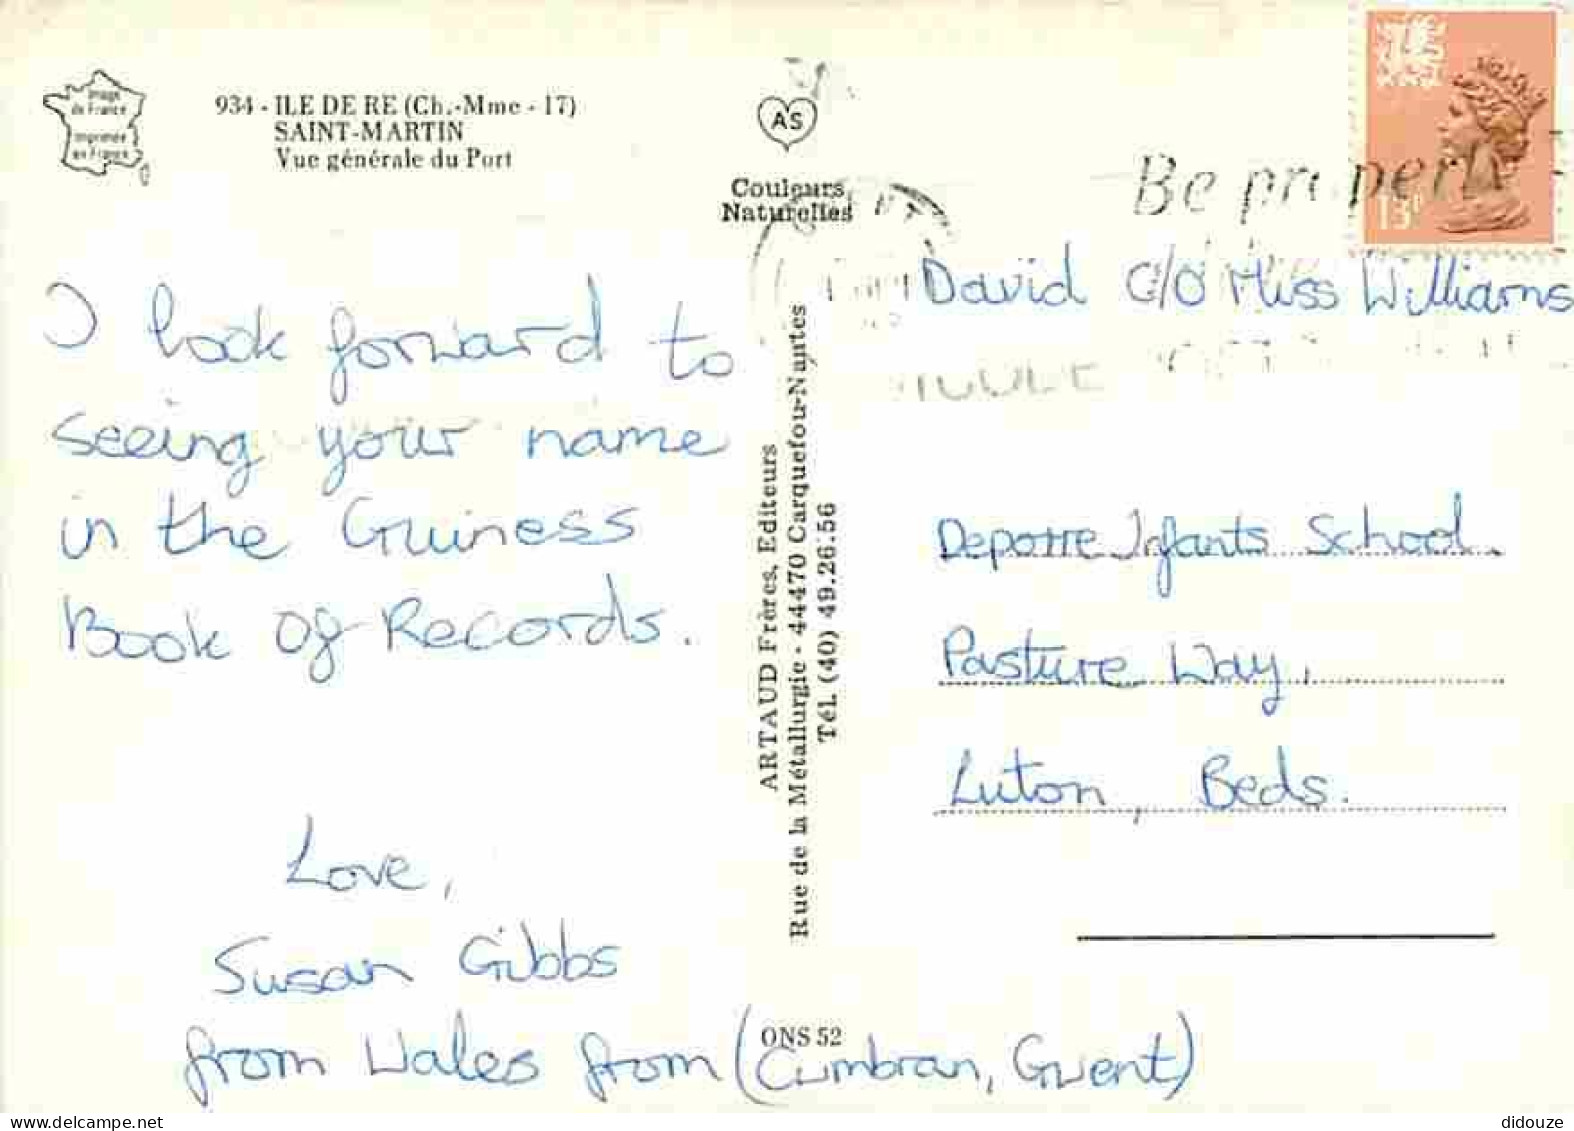 Image
de France
Imprimée
en France
934 - ILE DE RE (Ch.-Mme - 17)
SAINT-MARTIN
Vue générale du Port
AS
Couleurs
Naturelles
Be
13P
I look forward to
seeing your name
in the Guiness
Book of Records.
Love,
Susan Gibbs
from Wales from (Cwmbran, Gwent)
ARTAUD Frères, Editeurs
Rue de la Métallurgie - 44470 Carquefou-Nantes
Tél. (40) 49.26.56
ONS 52
David C/O Miss Williams
Deporre Infants School.
Pasture Way,
Luton, Beds.
didouze